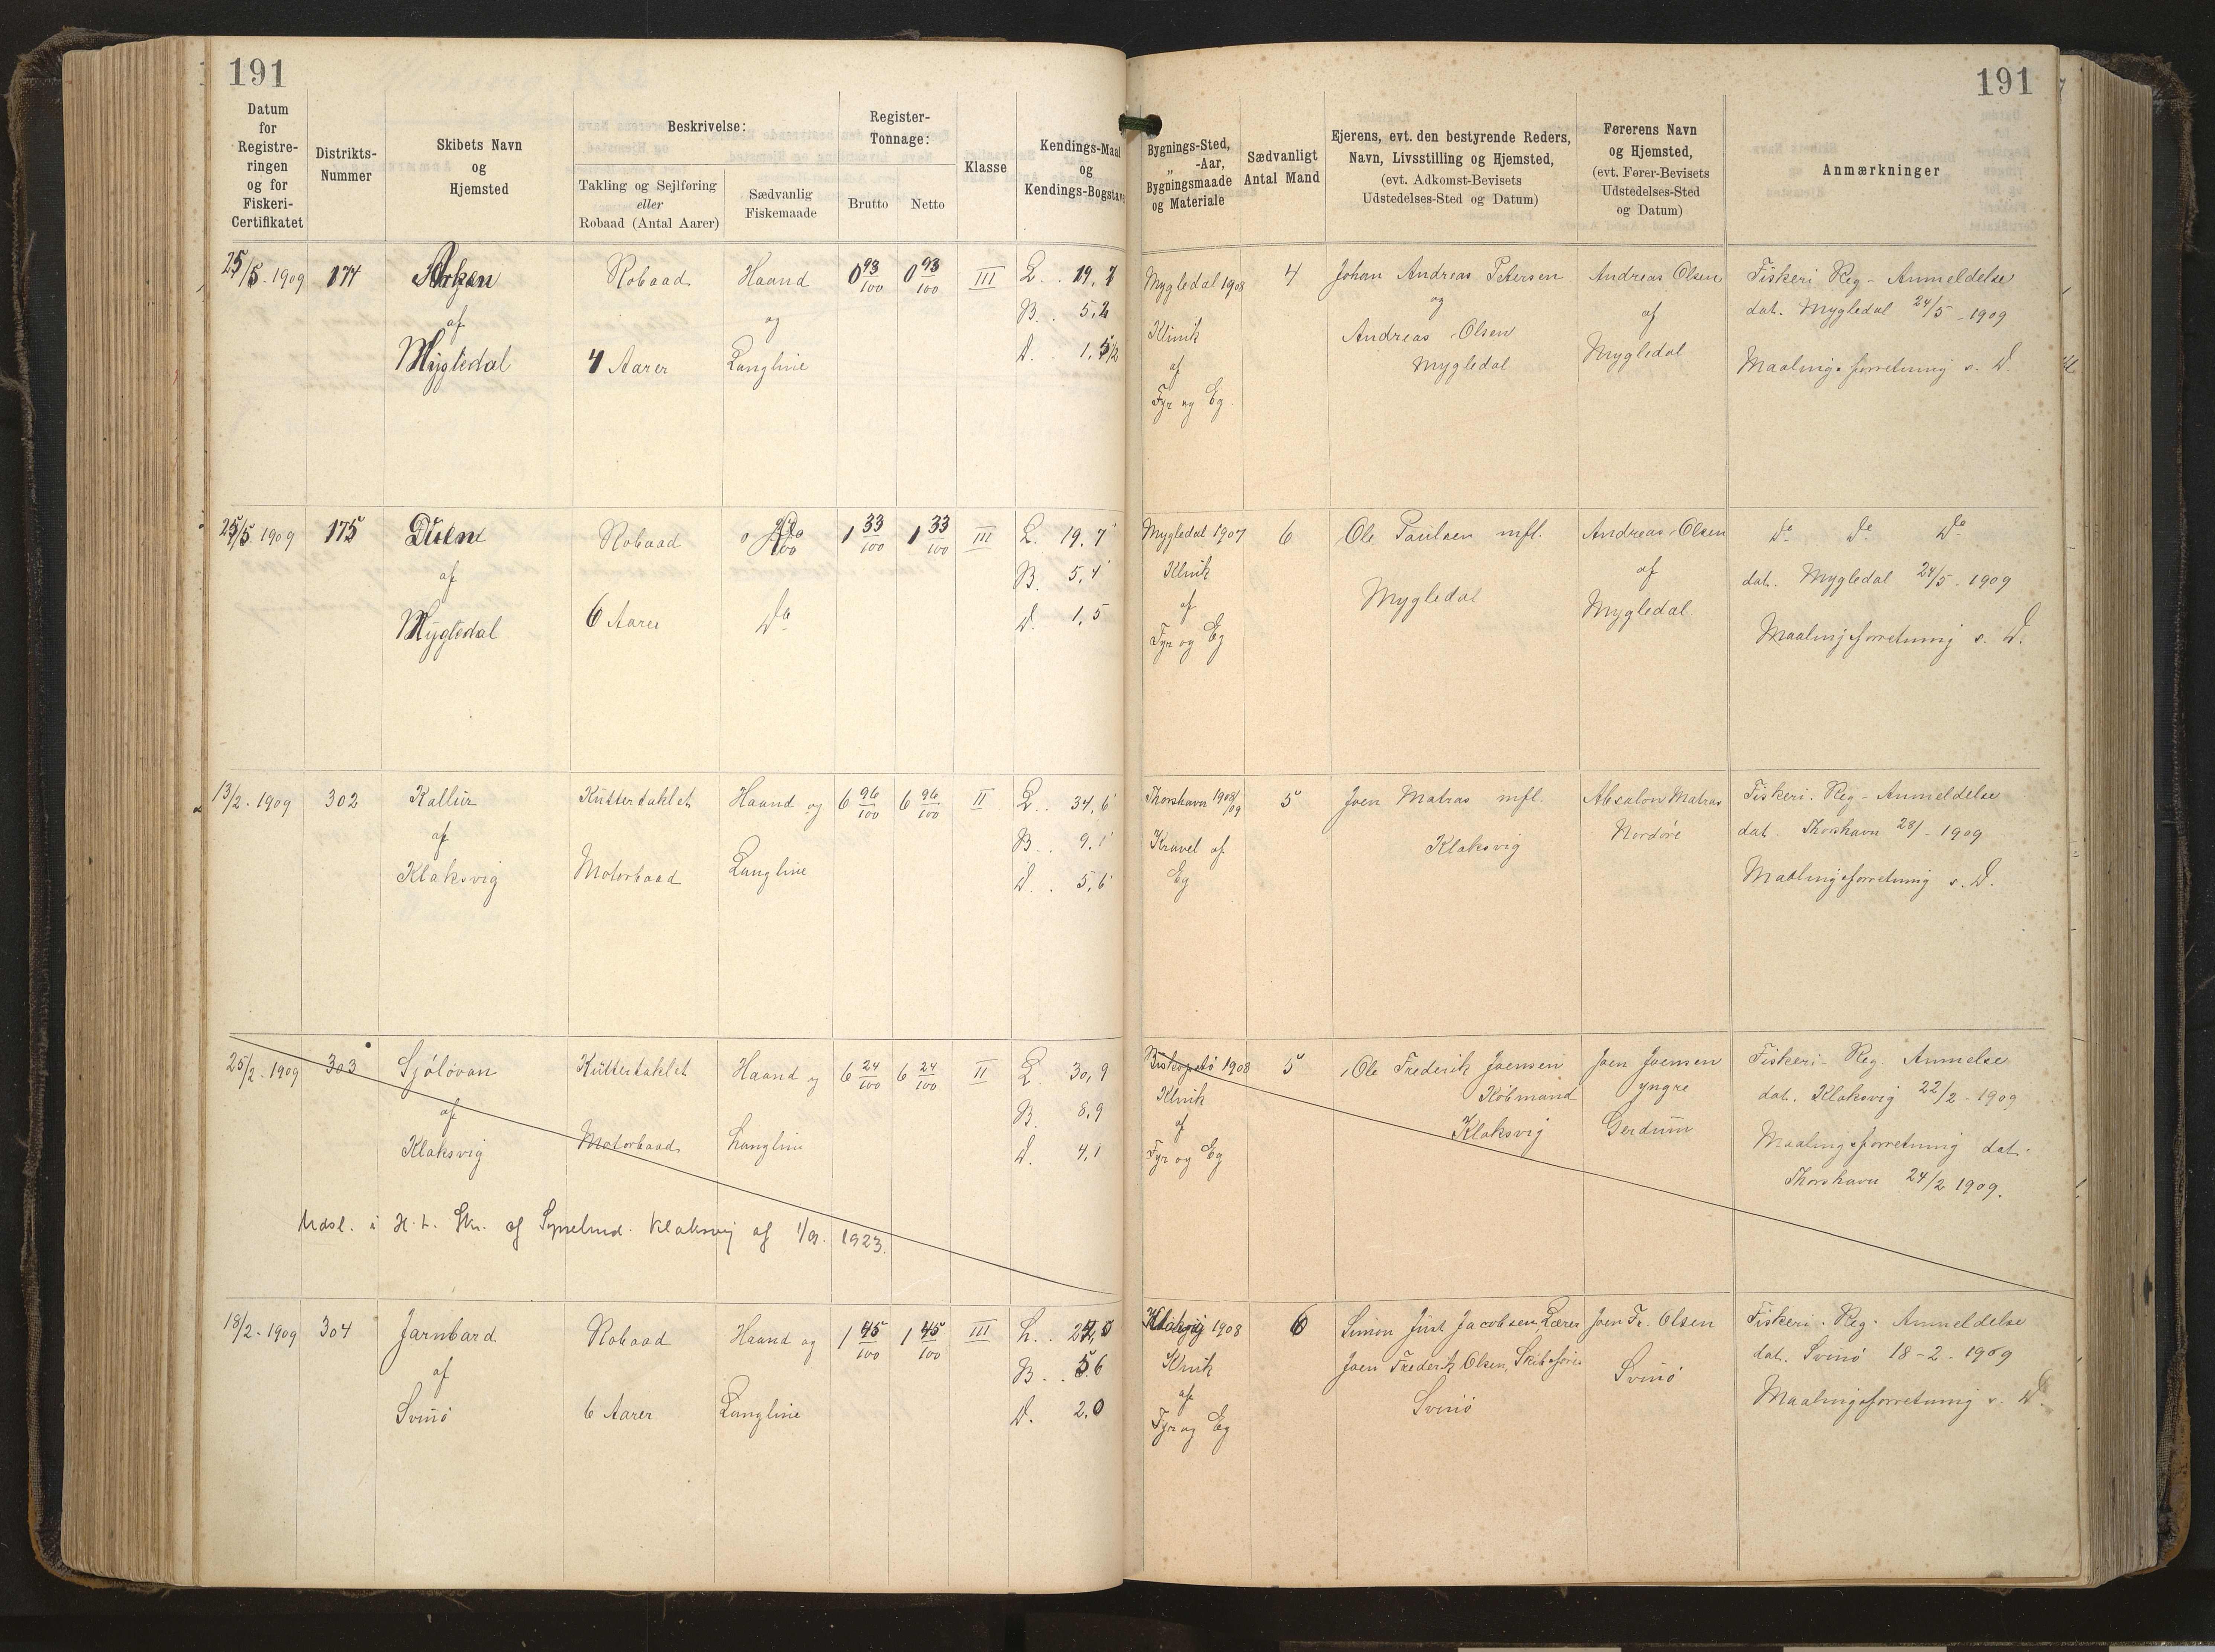 191
191
Datum
for
Registre-
ringen
og for
Fiskeri-
Certifikatet
Distrikts-
Nummer
Skibets Navn
og
Hjemsted
Beskrivelse:
Takling og Sejlføring
eller
Robaad (Antal Aarer)
Sædvanlig
Fiskemaade
Register-
Tonnage:
Brutto
Netto
Klasse
Kendings-Maal
og
Kendings-Bogstaver
Bygnings-Sted,
„ -Aar,
Bygningsmaade
og Materiale
Sædvanligt
Antal Mand
Ejerens, evt. den bestyrende Reders,
Navn, Livsstilling og Hjemsted,
(evt. Adkomst-Bevisets
Udstedelses-Sted og Datum)
Førerens Navn
og Hjemsted,
(evt. Fører-Bevisets
Udstedelses-Sted
og Datum)
Anmærkninger
25/5. 1909
174
Arken
af
Mygledal
Robaad
4 Aarer
Haand
og
Langline
0 93/100
0 93/100
III
L. . 19,7
B. . 5,2
D. . 1,5 1/2
Mygledal 1908
Klinik
af
Fyr og Eg.
4
Johan Andreas Petersen
og
Andreas Olsen
Mygledal
Andreas Olsen
af
Mygledal
Fiskeri Reg - Anmeldelse
dat. Mygledal 24/5 - 1909
Maalingsforretning s. D.
25/5. 1909
175
Duen
af
Mygledal
Robaad
6 Aarer
Do
1 33/100
1 33/100
III
L. 19,7'
B. 5,4'
D. 1,5
Mygledal 1907
Klinik
af
Fyr og Eg
6
Ole Poulsen mfl.
Mygledal
Andreas Olsen
af
Mygledal
Do Do Do
dat. Mygledal 24/5 - 1909
Maalingsforretning s. D.
13/2. 1909
302
Kallur
af
Klaksvig
Kuttertaklet
Motorbaad
Haand og
Langline
6 96/100
6 96/100
II
L. . 34,6'
B. . 9,1'
D. . 5,6'
Thorshavn 1908/09
Kravel af
Eg
5
Joen Matras mfl.
Klaksvig
Absalon Matras
Nordøre
Fiskeri. Reg - Anmeldelse
dat. Thorshavn 28/ - 1909
Maalingsforretning s. D.
25/2. 1909
303
Sjóløvan
af
Klaksvig
Kuttertaklet
Motorbaad
Haand og
Langline
6 24/100
6 24/100
II
L. 30,9
B. 8,9
D. 4,1
Biskopstø 1908
Klinik
af
Fyr og Eg
5
Ole Frederik Joensen
Købmand
Klaksvig
Joen Joensen
yngre
Gerdum
Fiskeri - Reg. Anmelse
dat. Klaksvig 22/2 - 1909
Maalingsforretning dat.
Thorshavn 24/2 1909.
Udsl. i H. t. Skr. af Sysselmd. Klaksvig af 1923.
18/2. 1909
304
Jarnbard
af
Svinö
Robaad
6 Aarer
Haand og
Langline
1 45/100
1 45/100
III
L. . 24,0
B. . 5.6
D. 2,0
Klaksvig 1908
Klinik
af
Fyr og Eg
6
Simon Just Jacobsen, Lærer
Joen Frederik Olsen, Skibsfører
Svinö
Joen Fr. Olsen
Svinö
Fiskeri. Reg. Anmeldelse
dat. Svinö 18-2-1909
Maalingsforretning s. D.